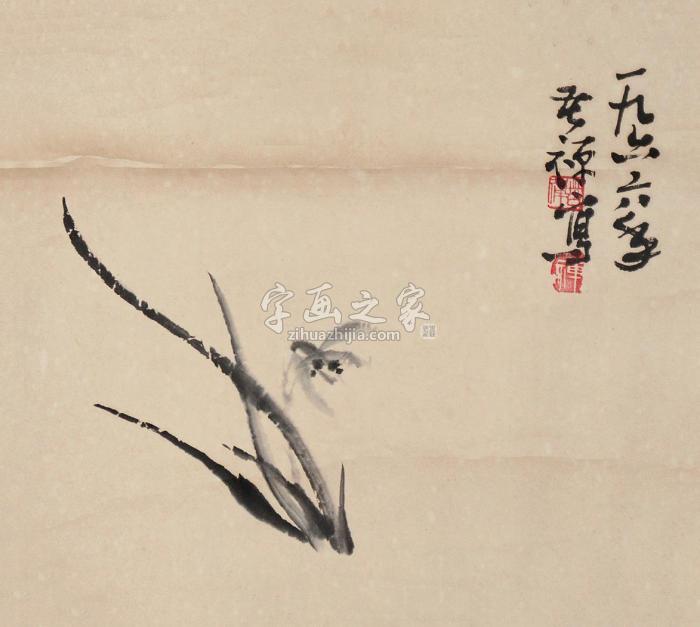 一九六六年
苦禅寫
字画之家
zihuazhijia.com